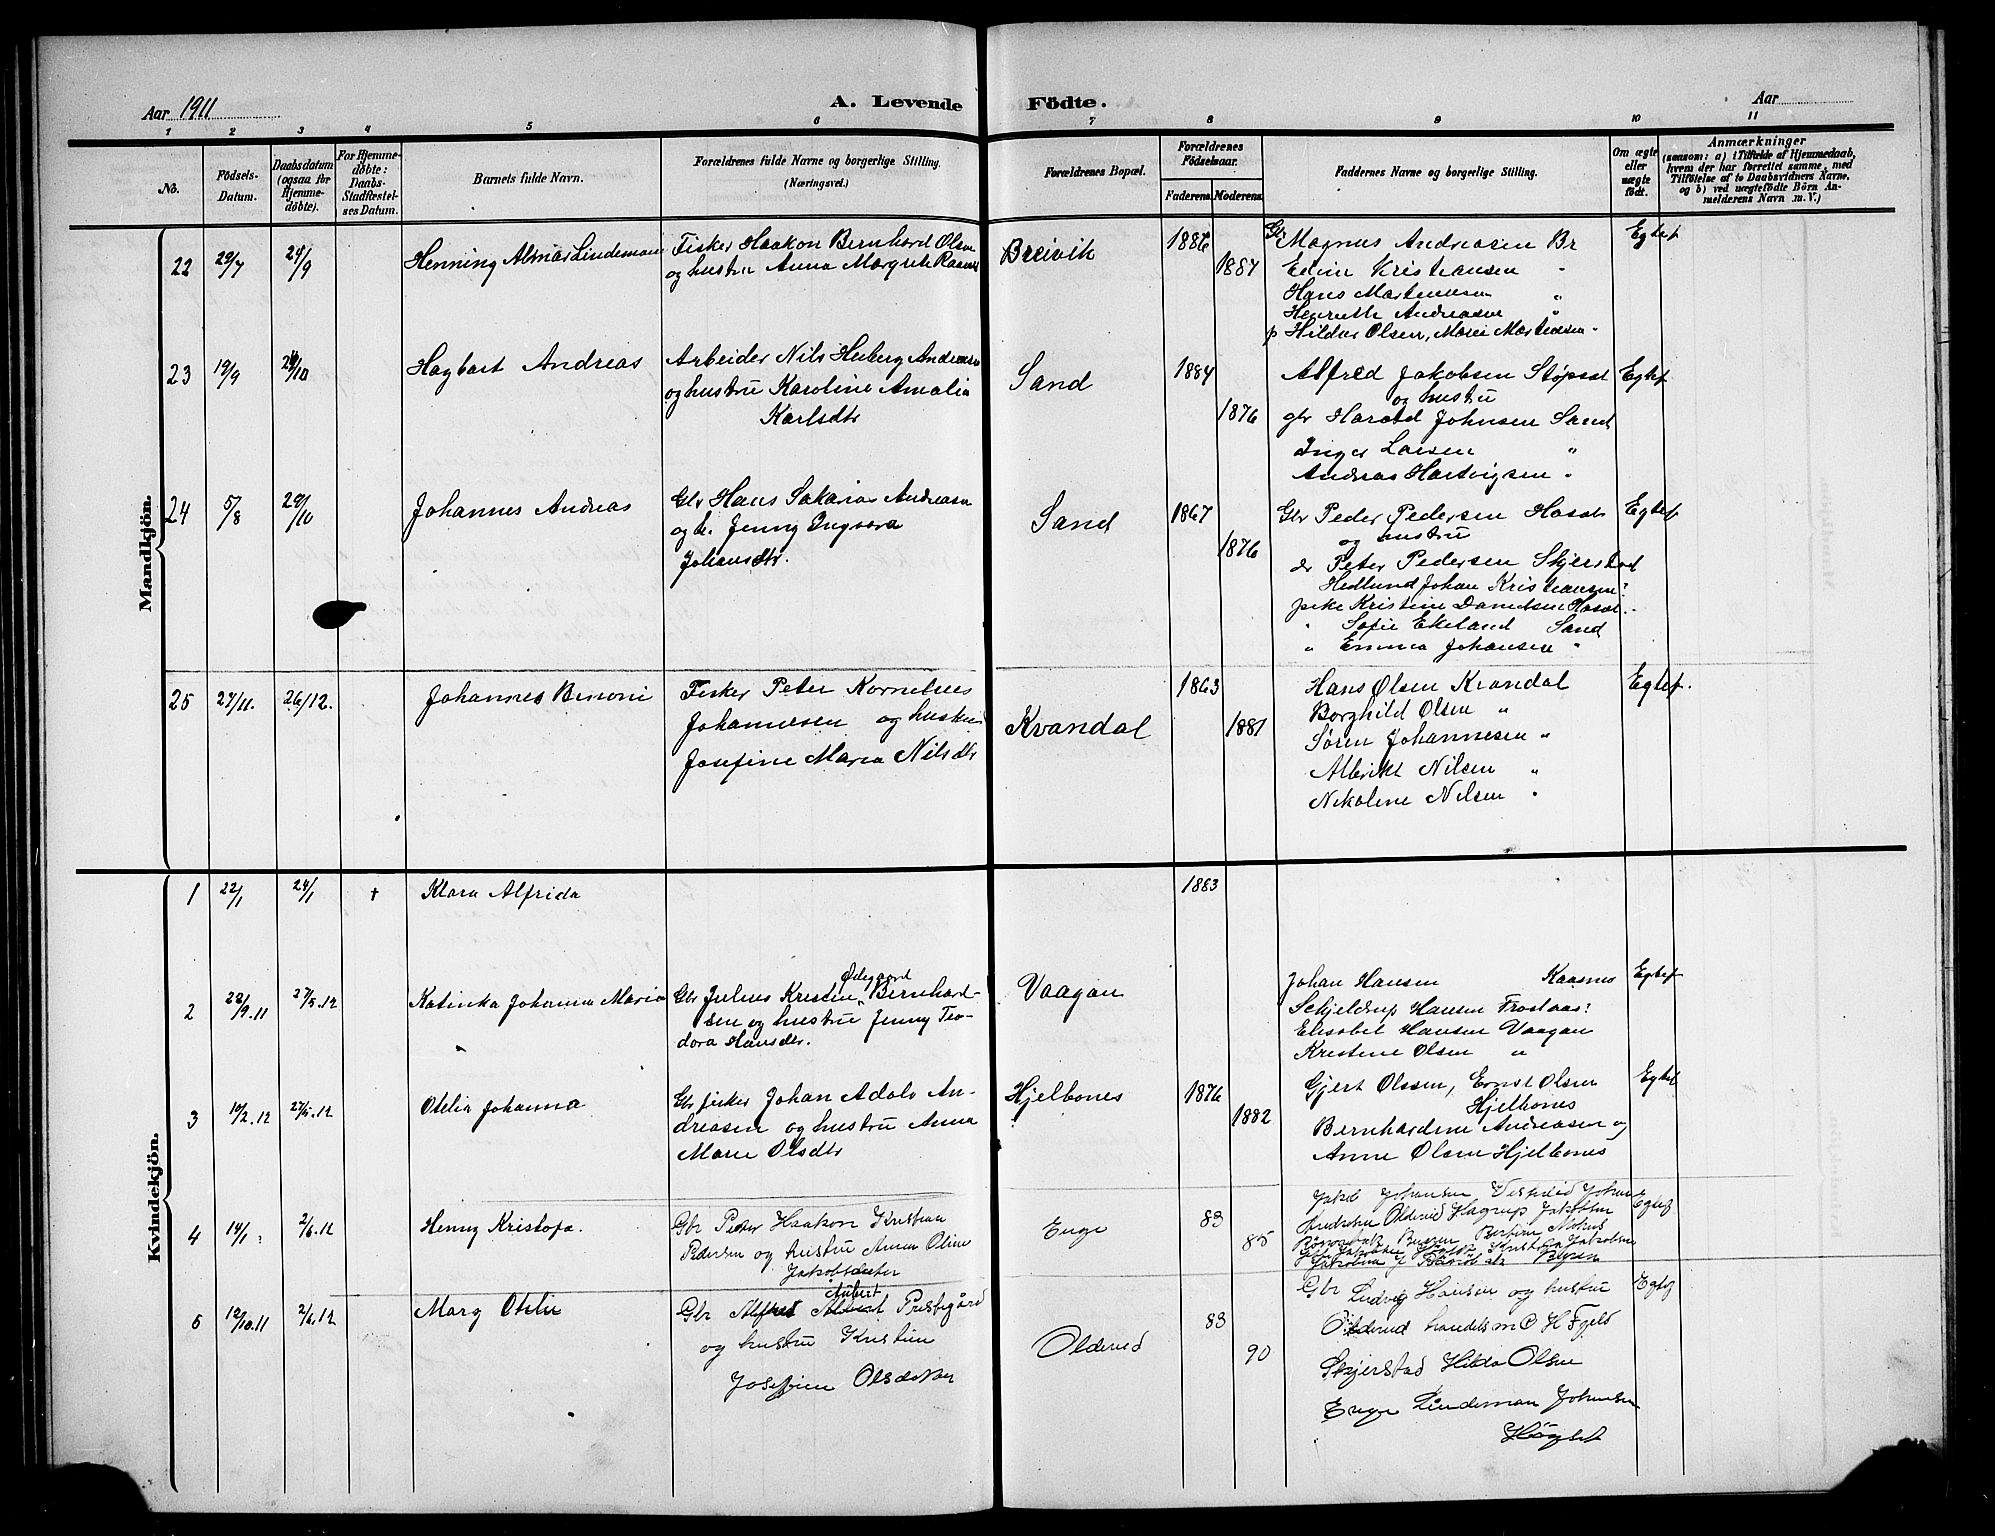 Aar 1911
A. Levende
Födte.
Aar
1 2 3 4 5 6 7 8 9 10 11
No.
Födsels-Datum.
Daabsdatum (ogsaa for Hjemme-döbte).
For Hjemme-döbte: Daabs-Stadfæstel-ses Datum.
Barnets fulde Navn.
Forældrenes fulde Navne og borgerlige Stilling. (Næringsvei.)
Forældrenes Bopæl.
Forældrenes Födselsaar.
Faderens. Moderens.
Faddernes Navne og borgerlige Stilling.
Om ægte eller uægte födt.
Anmærkninger
(saasom: a) i Tilfælde af Hjemmedaab, hvem der har forrettet samme, med Tilföielse af to Daabsvidners Navne, og b) ved uægtefödte Börn An-melderens Navn m. V.)
Mandkjön.
22 29/7 24/9 Henning Almar Lindeman
Fisker Haakon Bernhard Olsen
og hustru Anna Margrete
Breivik 1886 1887
Gbr Magnus Andreasen Br
Edin Kristiansen "
Hans Martinussen "
Henriette Andreasen "
p Hildur Olsen, Marei Martinsen "
Egtef
23 19/9 29/10 Hagbart Andreas
Arbeider Nils Heiberg Andreasen
og hustru Karoline Amalia
Karlsdtr
Sand 1884 1876
Alfred Jakobsen Støpset
og hustru
gbr Harald Johnsen Sand
Inger Larsen "
Andreas Hartvigsen "
Egtef
24 5/8 29/10 Johannes Andreas
Gbr Hans Sakarias Andreasen
og h. Jenny Ingvara
Johansdtr.
Sand 1867 1876
Gbr Peder Pedersen
og hustru
Peter Pedersen Skjerstad
Hedlund Johan Kristiansen?
pike Kristine Danielsen
" Sofie Ekeland Sand
" Emma Johansen "
Egtef
25 27/11. 26/12. Johannes Benoni
Fisker Peter Kornelius
Johannesen og hustru
Josefine Maria Nilsdtr
Kvandal 1863 1881
Hans Olsen Kvandal
Borghild Olsen "
Søren Johannesen "
Albrikt Nilsen "
Nikoline Nilsen "
Egtef.
Kvindekjön.
1 22/1 24/1 † Klara Alfrida
1883
2 22/9.11 27/5.12 Katinka Johanna Maria
Ødegaard
Gbr Julius Kristian Bernhard-
sen og hustru Jenny Teo-
dora Hansdtr.
Vaagan
Johan Hansen Kaasmo
Schjeldrup Hansen
Elisabet Hansen Vaagan
Kristine Olsen "
Egtef
3 19/2.12 27/5.12 Otelia Johanna
Gbr fisker Johan Adolv An-
dreasen og hustru Anna
Marie Olsdtr
Hjelbones 1876 1882
Gjert Olssen, Ernst Olsen
Hjelbones
Bernhardine Andreasen og
Anne Olsen Hjelbones
Egtef
4 14/1 2/6.12 Henny Kristofa.
Gbr Peter Haakon Kristian
Pedersen og hustru Anna Oline
Jakobsdatter
Enge 83 85
Johansen
Oldereid Hagrup Jakobsen
Egtef
5 12/10.11 2/6.12 Marg Otelie
Aubert
Gbr Alfred Prestegård
og hustru Kristine
Josefine Olsdatter
Oldereid 83 90
Gbr Ludvig Hansen og hustru
Oldereid handelsm O H Fjeld
Skjerstad Hilda Olsen
Enge Lindeman Johansen
Høgset
Egtef